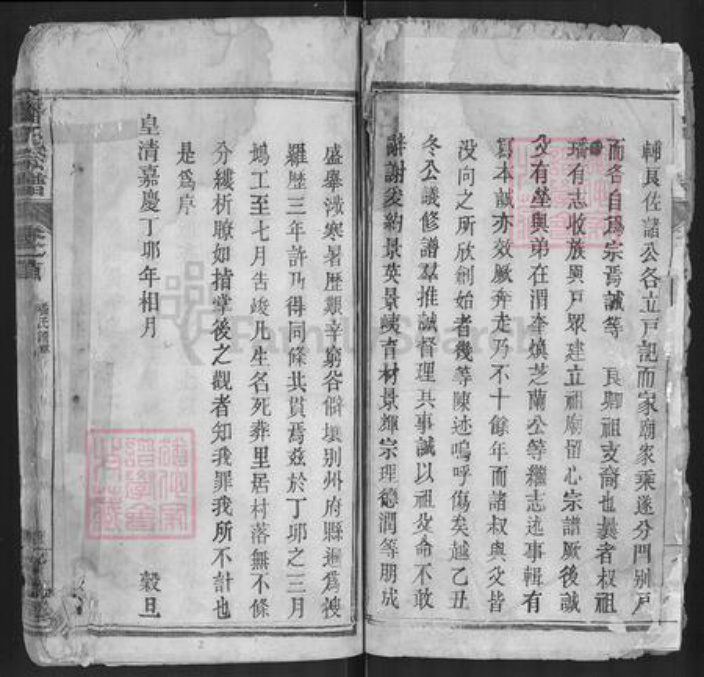 輔良佐諸公各立戸記而家廟家乘遂分門别戸
而各自爲宗焉誠等 良卿祖支裔也曩者叔祖
璠有志收族興戸眾建立祖廟留心宗譜厥後誠
父有瑩與弟在渭奎煥芝蘭公等繼志述事輯有
寫本誠亦效厥奔走乃不十餘年而諸叔與父皆
没向之所欣創始者幾等陳迹嗚呼傷矣越乙丑
冬公議修譜羣推誠督理其事誠以祖父命不敢
辭謝爰約景英景嶐育材景輝宗理德潤等朋成
盛舉濈寒暑歴艱辛窮谷僻壤别州府縣遍爲搜
羅歴三年許乃得同條共貫焉兹於丁邜之三月
鳩工至七月告竣凡生名死葬里居村落無不條
分縷析瞭如指掌後之觀者知我罪我所不計也
是爲序
皇清嘉慶丁邜年相月 穀旦
FamilySearch